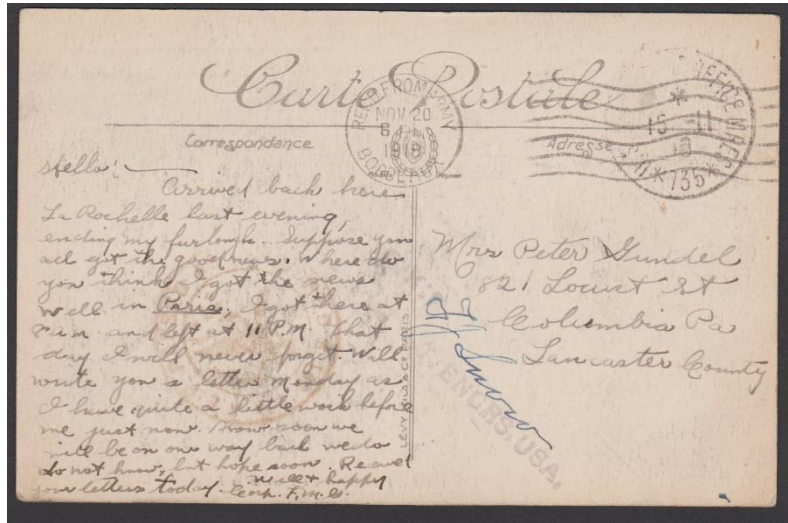 Carte Postale
REC'D FROM ARMY
NOV 20
6 AM
1918
BORDEAUX
OFFICE
15 11
* 735 *
Correspondance
Adresse
Hello:
Arrived back here
La Rochelle last evening,
ending my furlough. Suppose you
all got the good news. Where do
you think I got the news
well in Paris, I got there at
7 a.m. and left at 11 P.M. that
day I will never forget Will
write you a letter Monday as
I have quite a little work before
me just now. Know soon we
will be on our way back we do
do not know, but hope soon. Received
your letters today. Well & happy
Mrs Peter Gundel
821 Locust St
Columbia Pa
Lancaster County
ENGRS. USA.